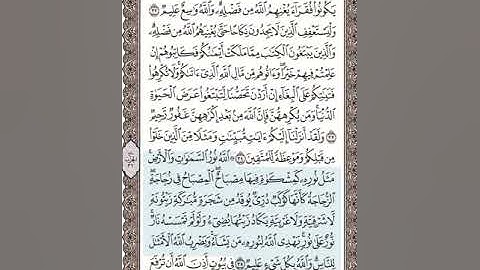 يَكُونُوا۟ فُقَرَآءَ يُغْنِهِمُ ٱللَّهُ مِن فَضْلِهِۦۗ وَٱللَّهُ وَٰسِعٌ عَلِيمٌ ٣٢
وَلْيَسْتَعْفِفِ ٱلَّذِينَ لَا يَجِدُونَ نِكَاحًا حَتَّىٰ يُغْنِيَهُمُ ٱللَّهُ مِن فَضْلِهِۦۗ
وَٱلَّذِينَ يَبْتَغُونَ ٱلْكِتَٰبَ مِمَّا مَلَكَتْ أَيْمَٰنُكُمْ فَكَاتِبُوهُمْ إِنْ
عَلِمْتُمْ فِيهِمْ خَيْرًاۖ وَءَاتُوهُم مِّن مَّالِ ٱللَّهِ ٱلَّذِىٓ ءَاتَىٰكُمْۚ وَلَا تُكْرِهُوا۟
فَتَيَٰتِكُمْ عَلَى ٱلْبِغَآءِ إِنْ أَرَدْنَ تَحَصُّنًا لِّتَبْتَغُوا۟ عَرَضَ ٱلْحَيَوٰةِ
ٱلدُّنْيَاۚ وَمَن يُكْرِههُّنَّ فَإِنَّ ٱللَّهَ مِنۢ بَعْدِ إِكْرَٰهِهِنَّ غَفُورٌ رَّحِيمٌ
٣٣ وَلَقَدْ أَنزَلْنَآ إِلَيْكُمْ ءَايَٰتٍ مُّبَيِّنَٰتٍ وَمَثَلًا مِّنَ ٱلَّذِينَ خَلَوْا۟
مِن قَبْلِكُمْ وَمَوْعِظَةً لِّلْمُتَّقِينَ ٣٤ ۞ ٱللَّهُ نُورُ ٱلسَّمَٰوَٰتِ وَٱلْأَرْضِۚ
مَثَلُ نُورِهِۦ كَمِشْكَوٰةٍ فِيهَا مِصْبَاحٌۖ ٱلْمِصْبَاحُ فِى زُجَاجَةٍۖ
ٱلزُّجَاجَةُ كَأَنَّهَا كَوْكَبٌ دُرِّىٌّ يُوقَدُ مِن شَجَرَةٍ مُّبَٰرَكَةٍ زَيْتُونَةٍ
لَّا شَرْقِيَّةٍ وَلَا غَرْبِيَّةٍ يَكَادُ زَيْتُهَا يُضِىٓءُ وَلَوْ لَمْ تَمْسَسْهُ نَارٌۚ
نُّورٌ عَلَىٰ نُورٍۗ يَهْدِى ٱللَّهُ لِنُورِهِۦ مَن يَشَآءُۚ وَيَضْرِبُ ٱللَّهُ ٱلْأَمْثَٰلَ
لِلنَّاسِۗ وَٱللَّهُ بِكُلِّ شَىْءٍ عَلِيمٌ ٣٥ فِى بُيُوتٍ أَذِنَ ٱللَّهُ أَن تُرْفَعَ